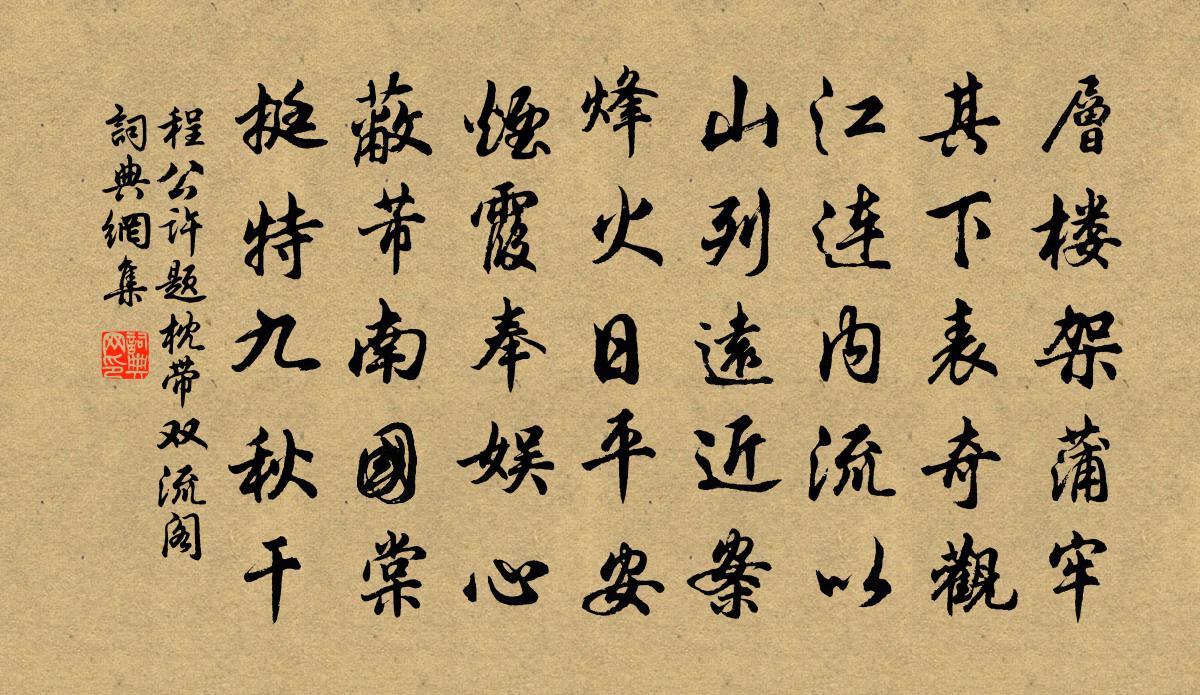 層楼架蒲牢
其下表奇觀
江连内流以
山列遠近案
烽火日平安
煙霞奉娱心
蔽芾南國棠
挺特九秋干
程公许题枕带双流阁
詞典網集
詞典网印